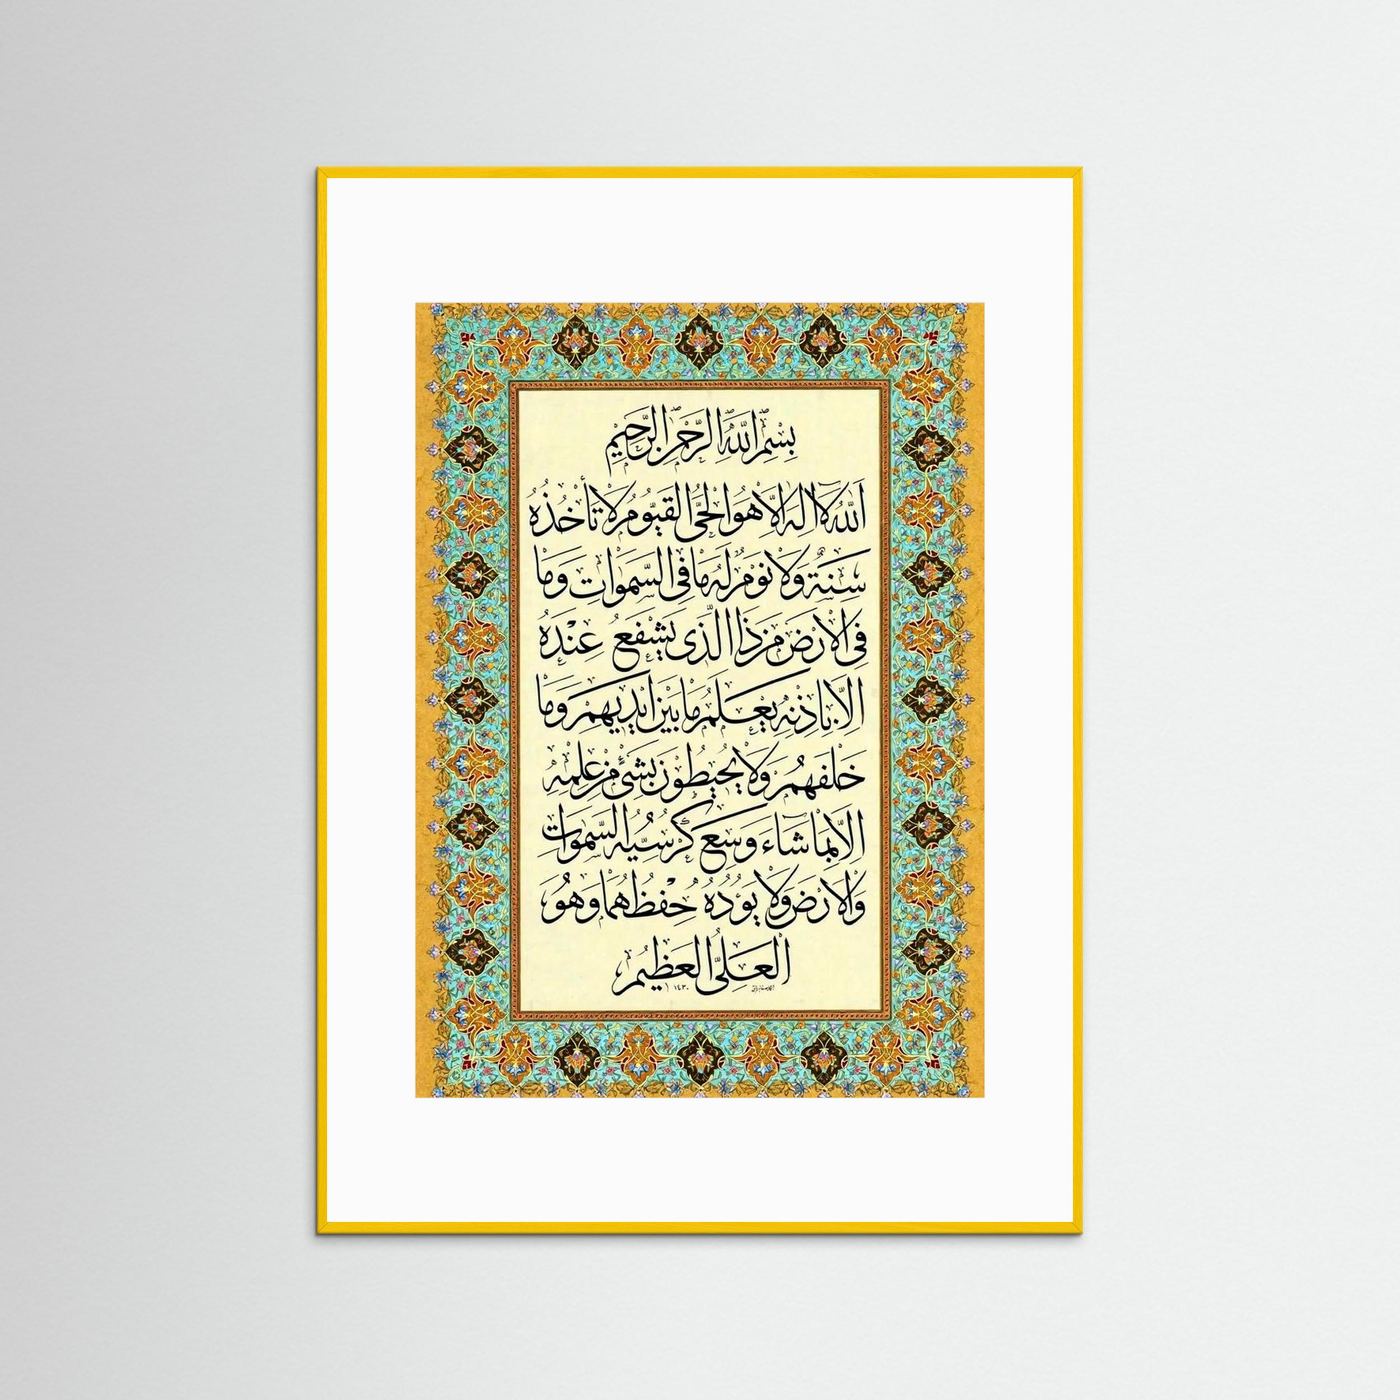 بسم الله الرحمن الرحيم
الله لا اله الا هو الحي القيوم لا تأخذه
سنة ولا نوم له ما في السموات وما
في الارض من ذا الذي يشفع عنده
الا باذنه يعلم ما بين ايديهم وما
خلفهم ولا يحيطون بشئ من علمه
الا بما شاء وسع كرسيه السموات
والارض ولا يؤده حفظهما وهو
العلي العظيم
١٤٣٠